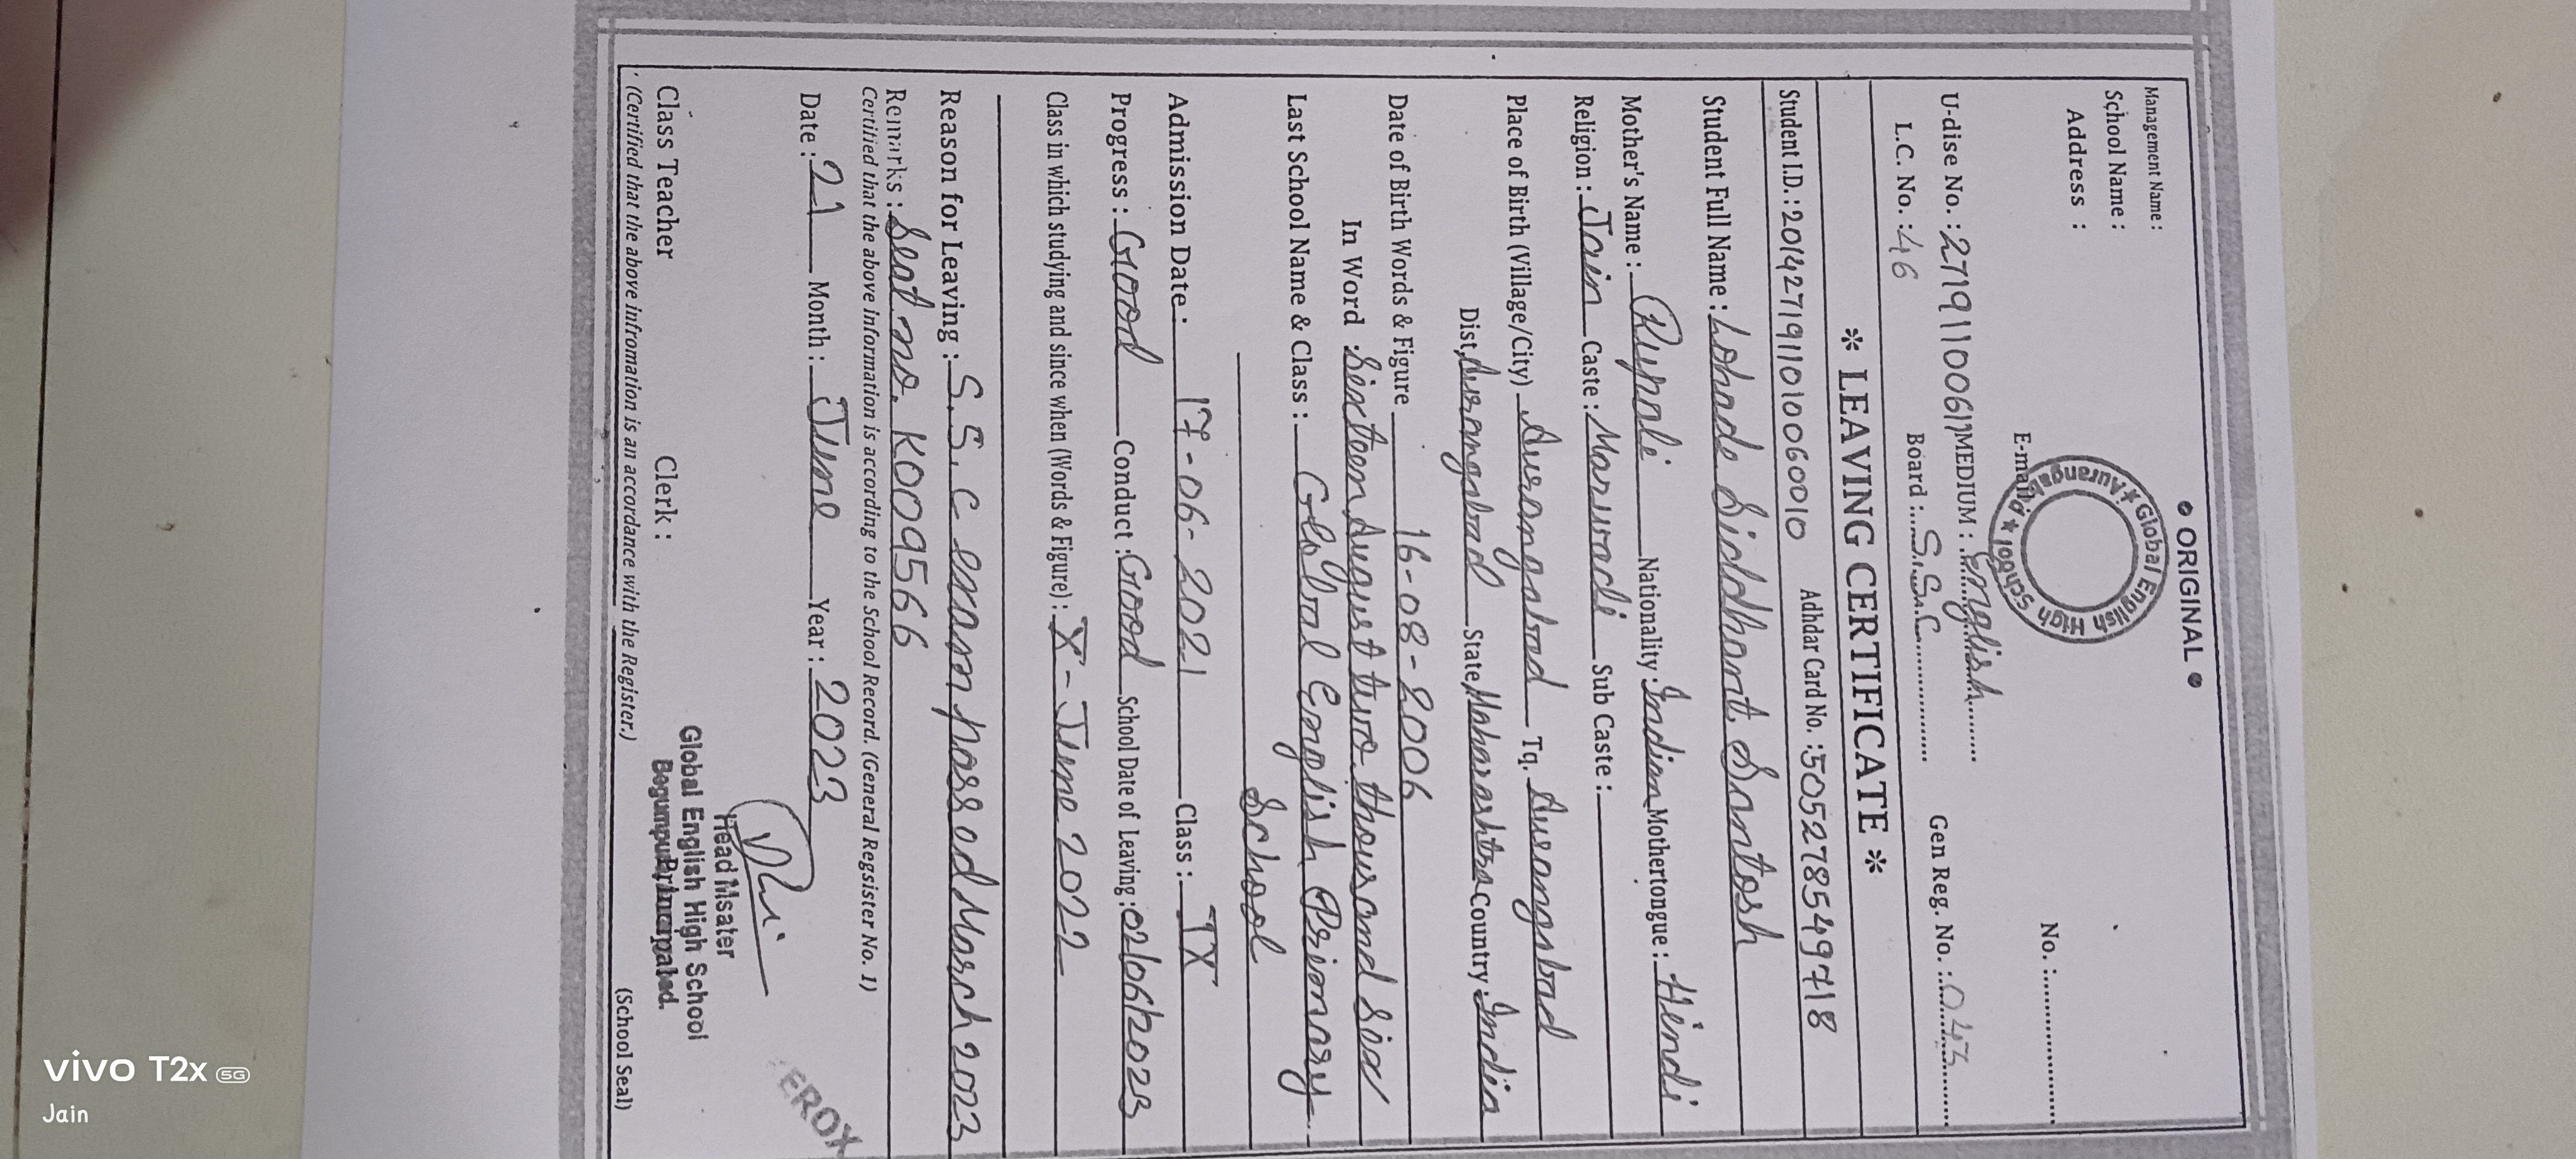 • ORIGINAL •
Management Name :
School Name :
Address :
No. :
E-mail
Global English High School ★ Aurangabad ★
U-dise No. : 27191100611 MEDIUM : English Gen Reg. No. : 043
L.C. No. : 46 Board : S.S.C
* LEAVING CERTIFICATE *
Student I.D.: 2014271911010060010 Adhdar Card No. : 505278549718
Student Full Name : Lohade Siddhant Santosh
Mother's Name : Rupali Nationality : Indian Mothertongue : Hindi
Religion : Jain Caste : Marwadi Sub Caste :
Place of Birth (Village/City) Aurangabad Tq. Aurangabad
Dist, Aurangabad State, Maharashtra Country : India
Date of Birth Words & Figure 16-08-2006
In Word : Sixteen August two thousand six
Last School Name & Class : Global English Primary
School
Admission Date : 17-06-2021 Class : IX
Progress : Good Conduct : Good School Date of Leaving : 02/06/2023
Class in which studying and since when (Words & Figure) : X - June 2022
Reason for Leaving : S.S.C exam passed March 2023
Remarks : Seat no. K009566
Certitied that the above information is according to the School Record. (General Regsister No. 1)
Date : 21 Month : June Year : 2023
Class Teacher Clerk : Head Msater
Global English High School
Principal
(School Seal)
(Certified that the above infromation is an accordance with the Register.)
EROX
vivo T2x 5G
Jain